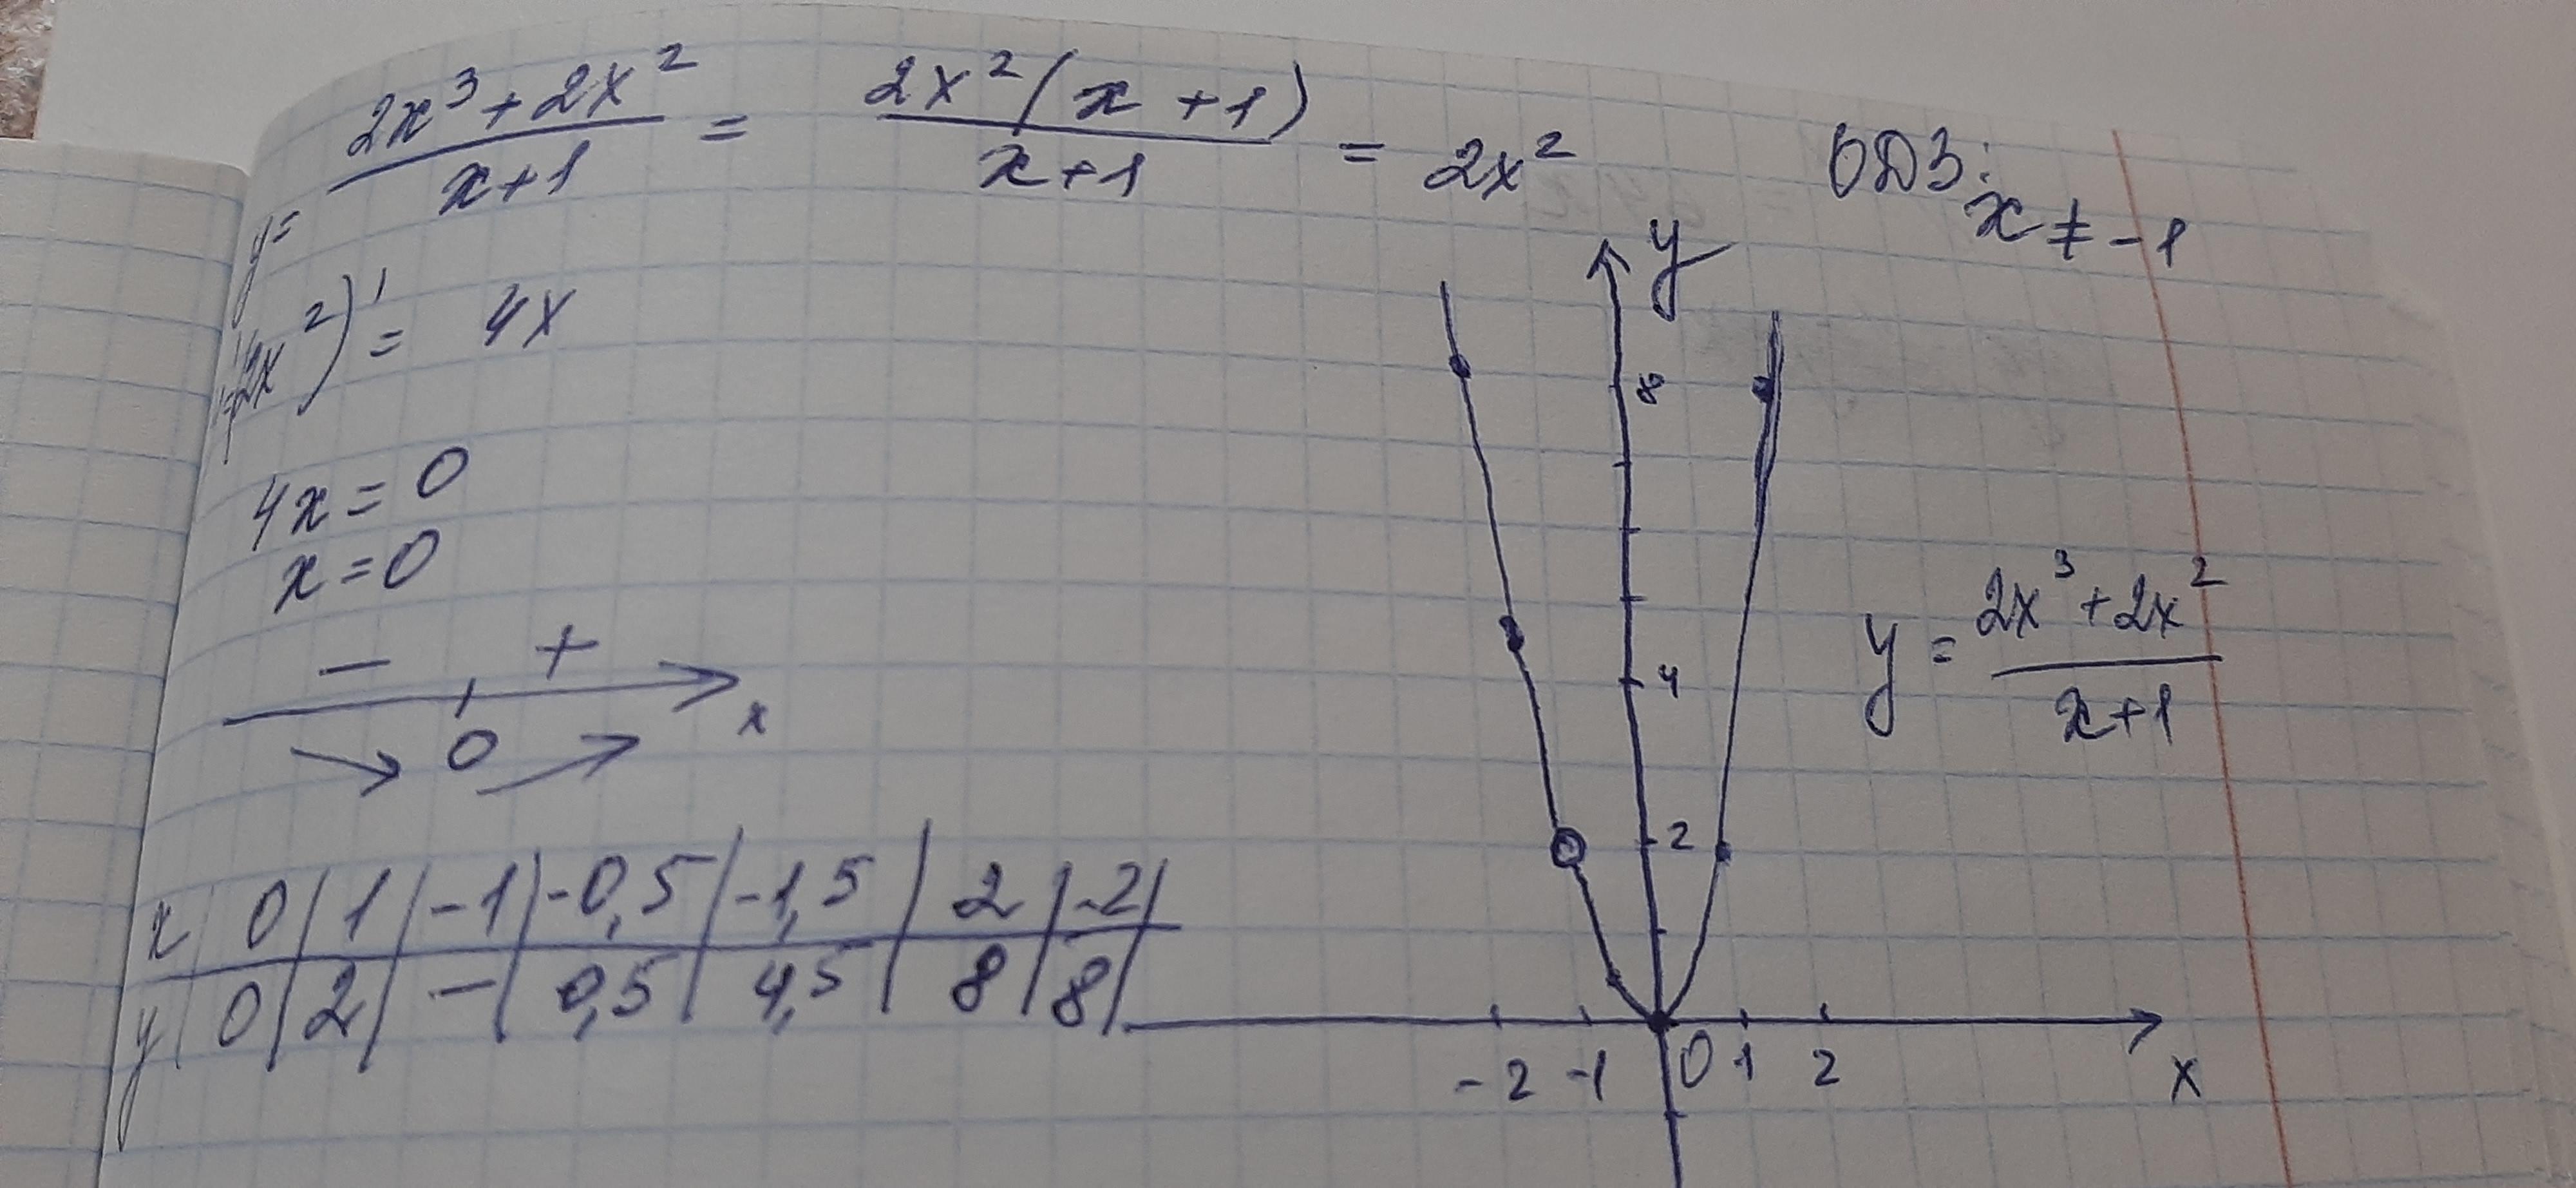 y = (2x³ + 2x²)/(x+1) = 2x²(x+1)/(x+1) = 2x² ОДЗ: x ≠ -1
(2x²)' = 4x
4x = 0
x = 0
− +
0 x
x | 0 | 1 | -1 | -0,5 | -1,5 | 2 | -2 |
y | 0 | 2 | — | 0,5 | 4,5 | 8 | 8 |
y
8
4
2
-2 -1 0 1 2 x
y = (2x³ + 2x²)/(x+1)